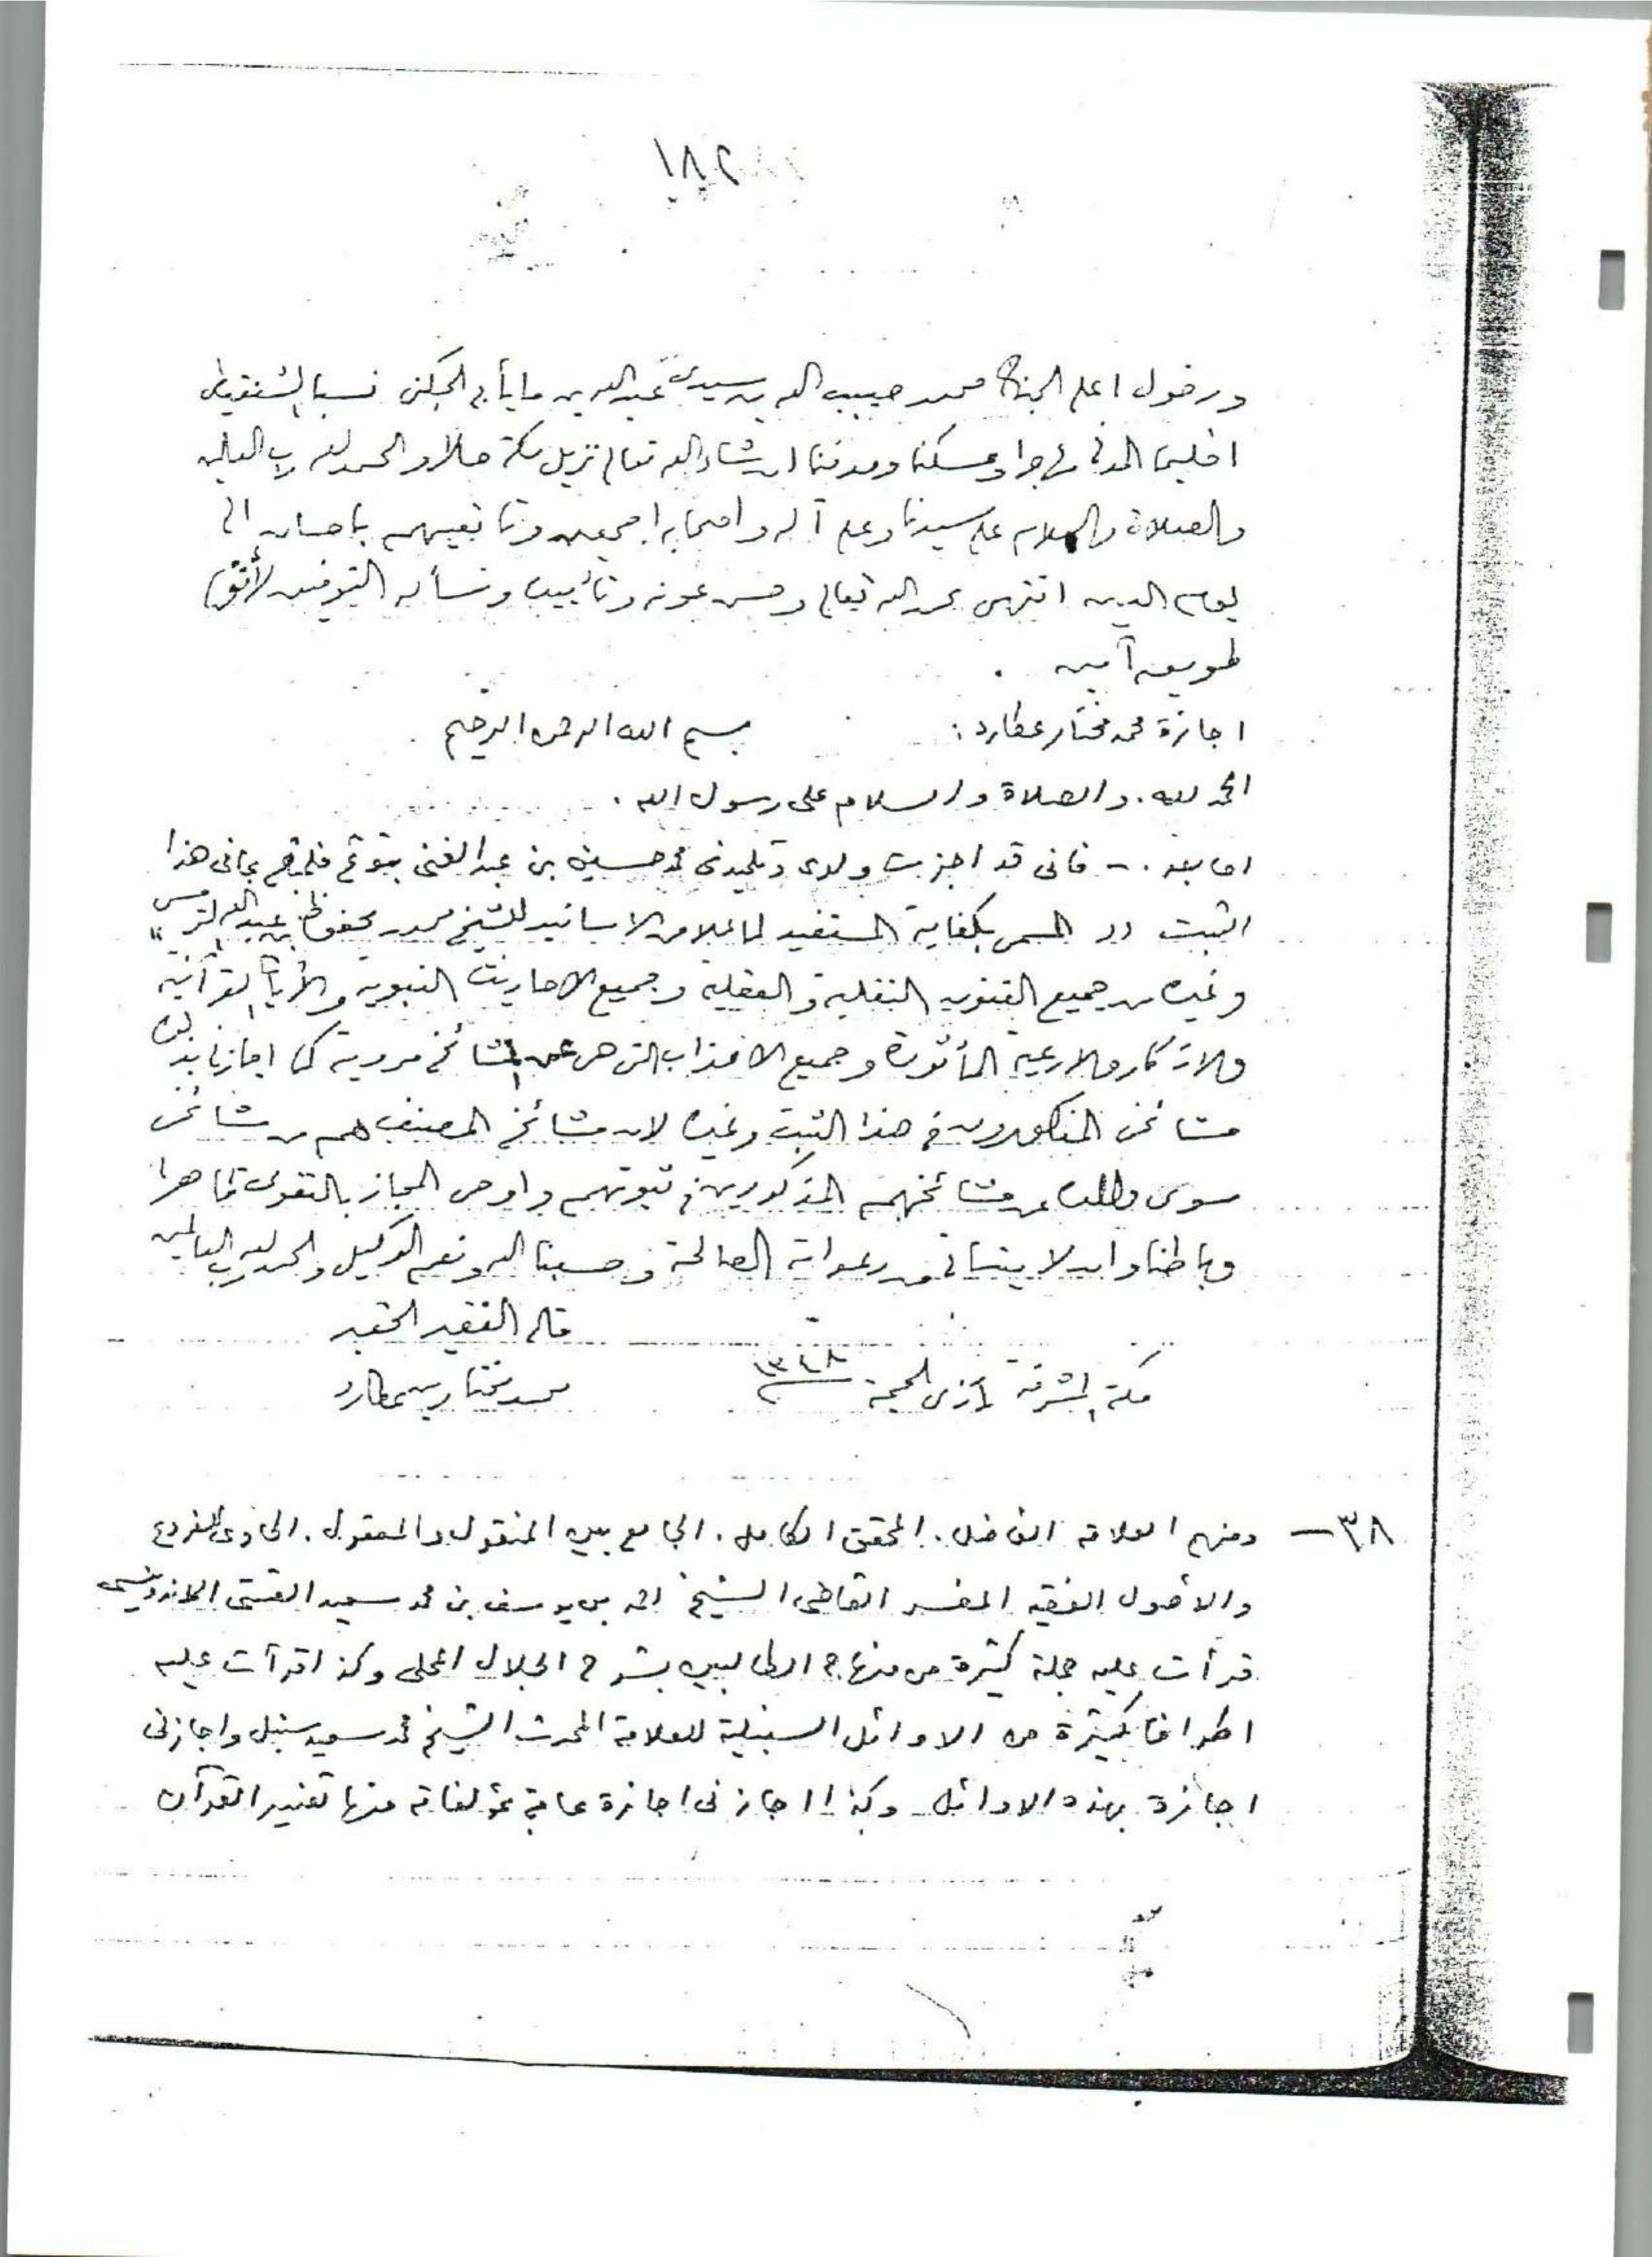 ١٨٢
ودخول اعلى الجنان محمد حبيب الله بن سيدى عبد الله بن مايأبى الجكنى نسبا الشنقيطى
اقليما المدنى مهاجرا ومسكنا ومدفنا ان شاء الله تعالى نزيل مكة حالا والحمد لله رب العالمين
والصلاة والسلام على سيدنا وعلى آله واصحابه اجمعين وتابعيهم باحسان الى
يوم الدين انتهى بحمد الله تعالى وحسن عونه وتأييده ونسأله التوفيق لأقوم
طريق آمين .
اجازة محمد مختار عطارد : بسم الله الرحمن الرحيم
الحمد لله . والصلاة والسلام على رسول الله .
اما بعد . - فانى قد اجزت ولدى وتلميذى محمد حسين بن عبد الغنى بما فى هذا
الثبت المسمى بكفاية المستفيد لما علا من الاسانيد للشيخ محمد محفوظ بن عبد الله الترمسى
وغيره من جميع الفنون النقلية والعقلية وجميع الاحاديث النبوية والأيات القرآنية
والاذكار والادعية المأثورة وجميع الاحزاب التى هى عن المشائخ مروية كما اجازنا بذلك
مشائخى المذكورون فى هذا الثبت وغيره لان مشائخ المصنف هم مشائخى
سوى والده عن مشائخهم المذكورين فى ثبوتهم واوصى المجاز بالتقوى ظاهرا
وباطنا وان لا ينسانى من دعواته الصالحة وحسبنا الله ونعم الوكيل والحمد لله رب العالمين
قاله الفقير الحقير
مكة المشرفة ذى الحجة ١٣٤٨ محمد مختار بن عطارد
٣٨ - ومنهم العلامة الفاضل . المحقق الكامل . الجامع بين المنقول والمعقول . الحاوى للفروع
والاصول الفقيه المفسر القاضى الشيخ احمد بن يوسف بن محمد سعيد القستى الاندونيسى
قرأت عليه جملة كثيرة من منهاج الطالبين بشرح الجلال المحلى وكذا قرأت عليه
اطرافا كثيرة من الاوائل السنبلية للعلامة المحدث الشيخ محمد سعيد سنبل واجازنى
اجازة بهذه الاوائل وكذا اجازنى اجازة عامة بمؤلفاته منها تفسير القرآن